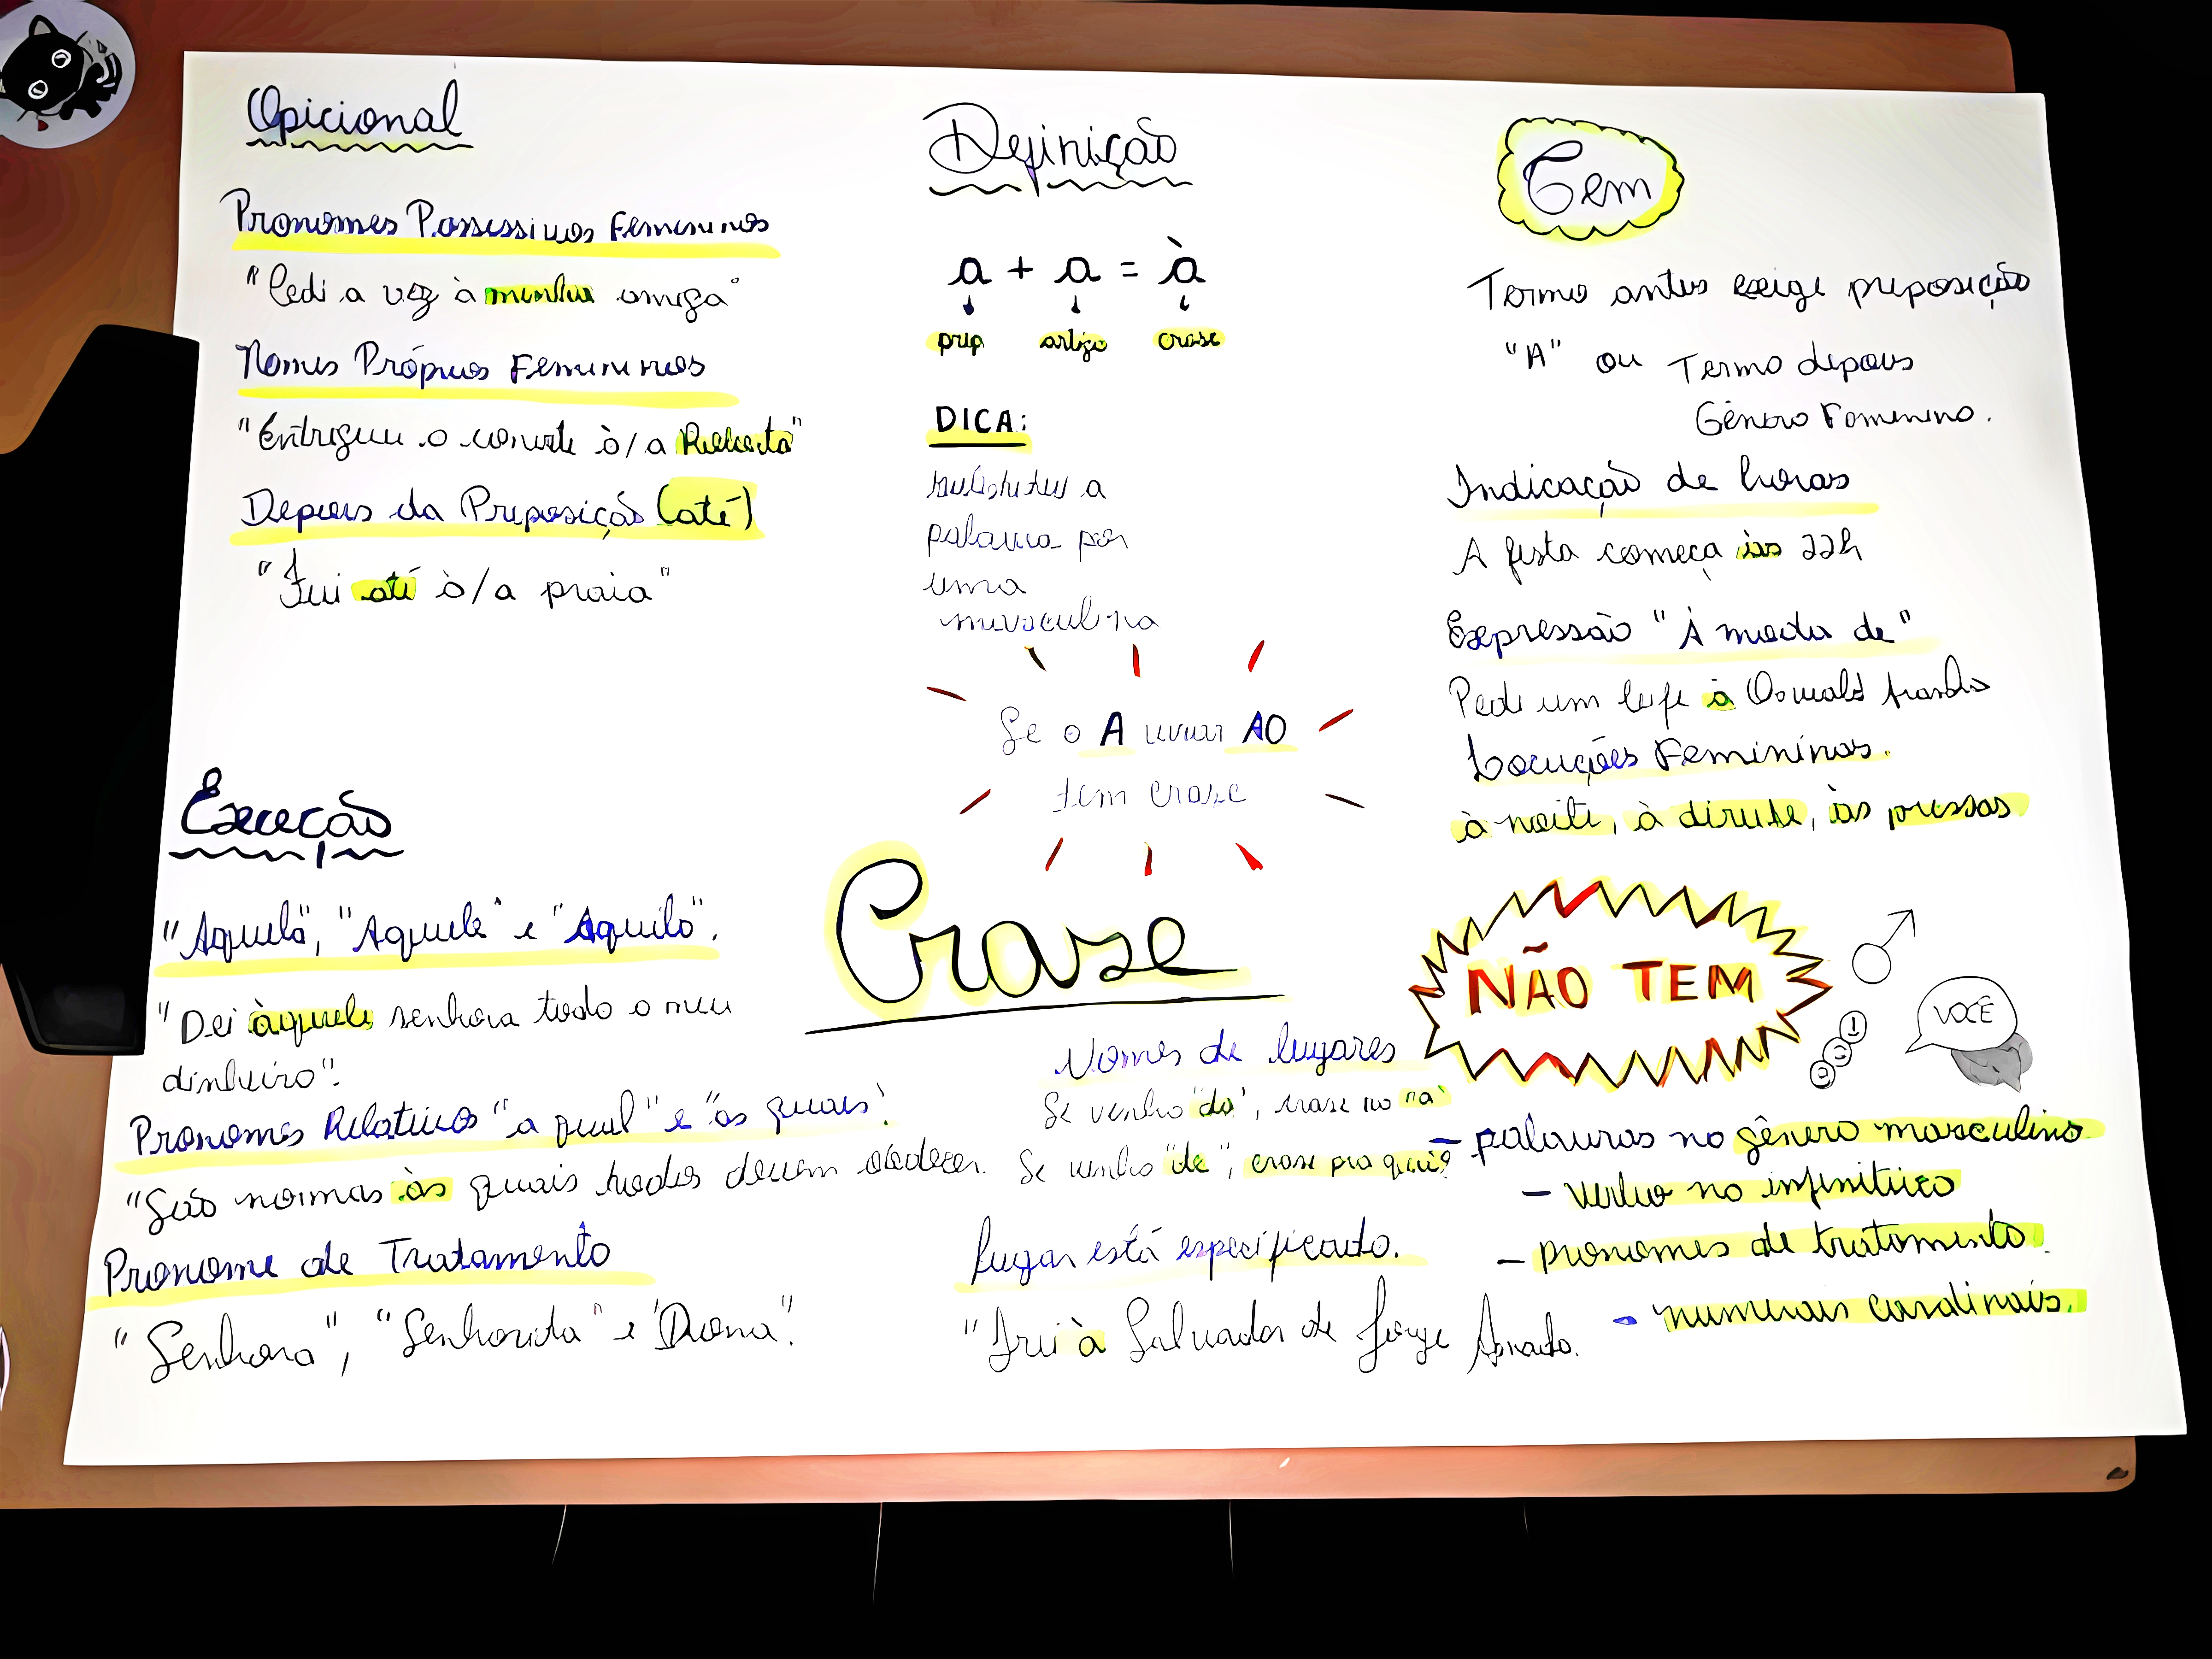 Opicional
Pronomes Possessivos Femininos
"Cedi a vez à minha amiga"
Nomes Próprios Femininos
"Entreguei o convite à/a Roberta"
Depois da Preposição (até)
"Fui até à/a praia"
Exceção
"Aquela", "Aquele" e "Aquilo".
"Dei àquela senhora todo o meu
dinheiro".
Pronomes Relativos "a qual" e "as quais".
"São normas às quais todos devem obedecer
Pronome de Tratamento
"Senhora", "Senhorita" e "Dona".
Definição
a + a = à
prep artigo crase
DICA:
substitui a
palavra por
uma
masculina
Se o A virar AO
tem crase
Crase
Nomes de lugares
Se venho "da", crase no "a"
Se venho "de", crase pra quê?
Lugar está especificado.
"Irei à Salvador de Jorge Amado.
Tem
Termo antes exige preposição
"A" ou Termo depois
Gênero Feminino.
Indicação de horas
A festa começa às 22h
Expressão "À moda de"
Pedi um bife à Oswald Aranha
Locuções Femininas.
à noite, à direita, às pressas
NÃO TEM
VOCÊ
- palavras no gênero masculino
- verbo no infinitivo
- pronomes de tratamento.
- numerais cardinais.